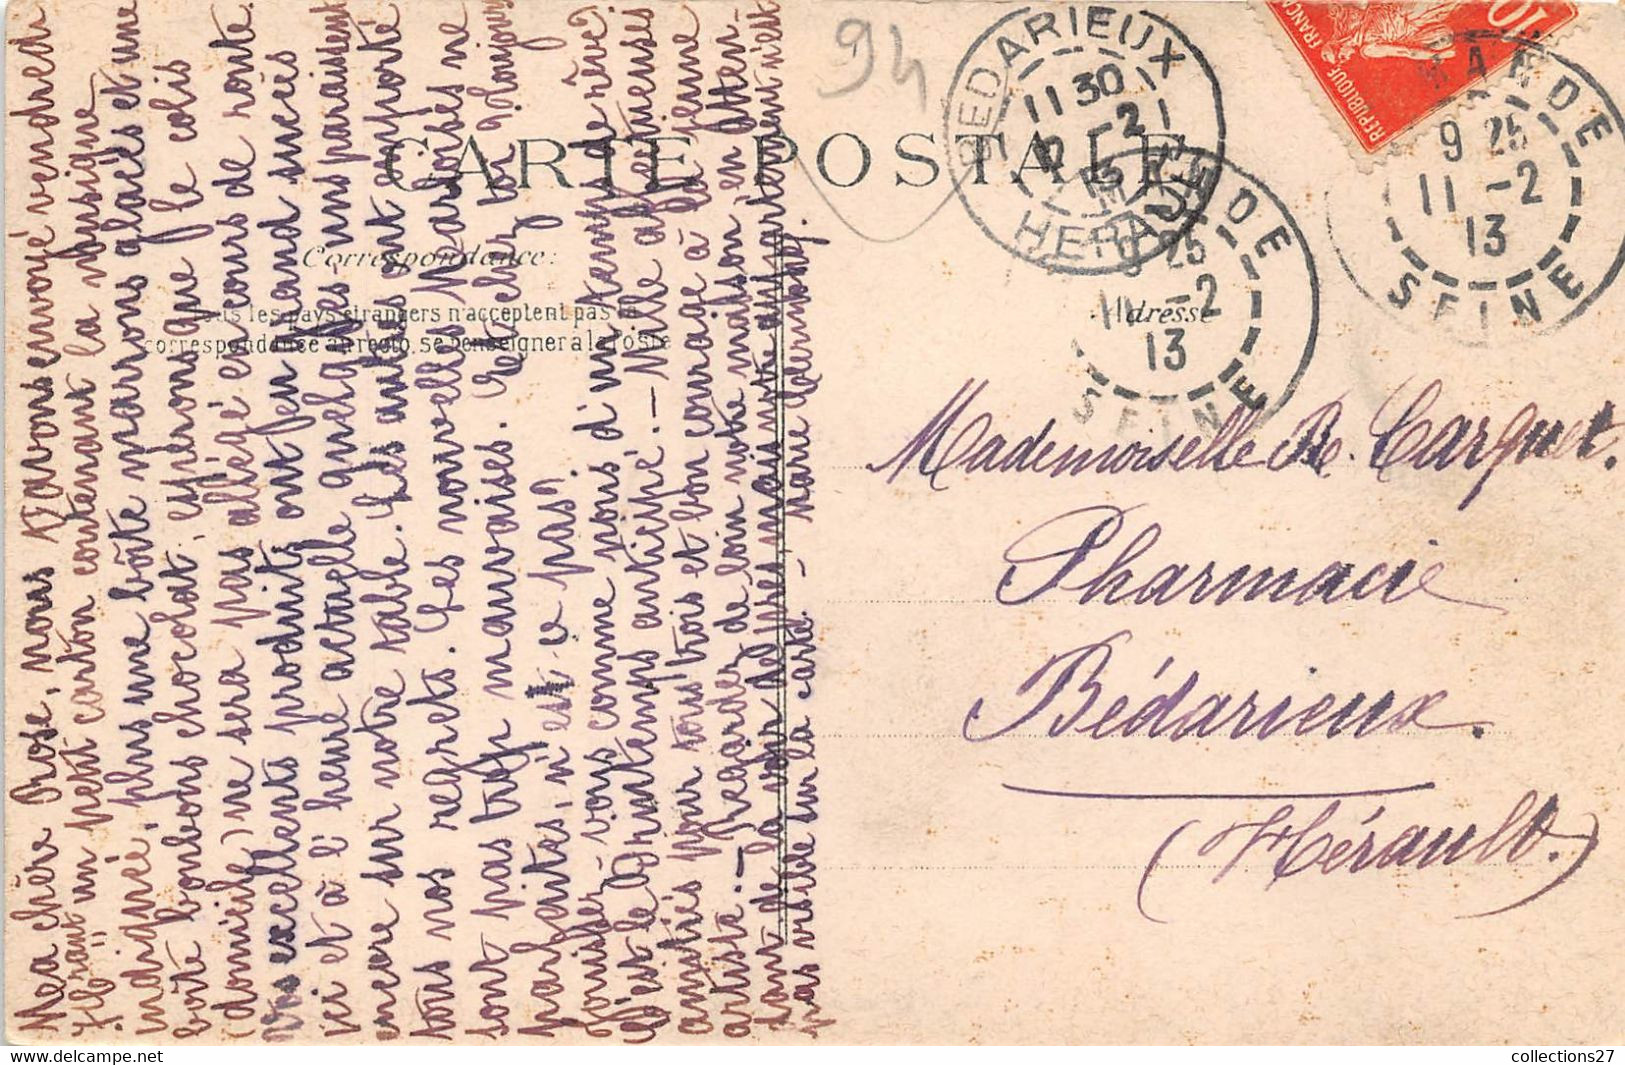 94
CARTE POSTALE
Correspondance:
Tous les pays étrangers n'acceptent pas la
correspondance au recto, se renseigner à la Poste
Adresse
BEDARIEUX
11 30
12 -2
13
HERAULT
MANDE
9 25
11 -2
13
SEINE
MANDE
9 25
11 -2
13
SEINE
10
REPUBLIQUE FRANÇAISE
Ma chère Rose, nous t'avons envoyé vendredi
un petit carton contenant la musique
indiquée, plus une boîte marrons glacés et une
boîte bonbons chocolat, espérons que le colis
(domicile) ne sera pas allégé en cours de route.
Vos excellents produits ont feu grand succès
ici et à l'heure actuelle quelques uns paraissent
encore sur notre table. Les autres ont emporté
tous nos regrets. Les nouvelles Narboises ne
sont pas trop mauvaises. Et chez toi toujours
parfaites, n'est-ce pas?
Jouissez-vous comme nous d'un temps de rêve?
C'est le Printemps anticipé. — Mille affectueuses
amitiés pour tous trois et bon courage à la jeune
artiste. — Regardez de loin notre maison, en atten-
dant de la voir de près mais notre appartement n'est
pas visible sur la carte. — Marie
Mademoiselle Re. Carquet.
Pharmacie
Bédarieux.
(Hérault.)
collections27